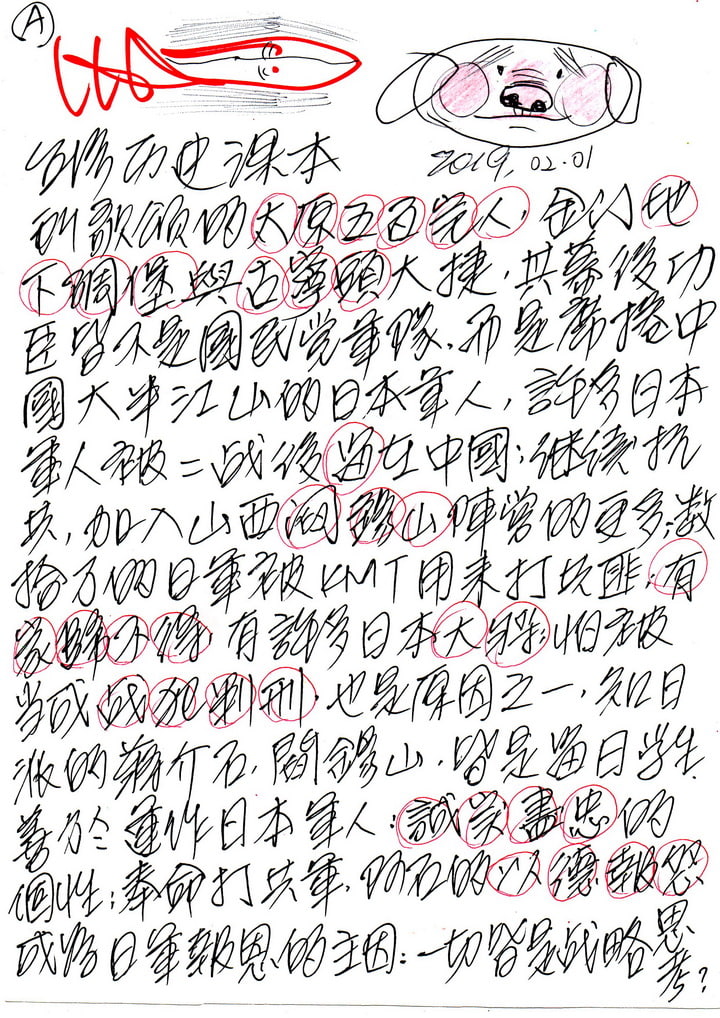 A
台灣历史课本
2019.02.01
所歌颂的太原五百完人,金门地
下碉堡與古寧頭大捷,其幕後功
臣皆不是國民党軍隊,而是席捲中
國大半江山的日本軍人,許多日本
軍人被二战後留在中國;继续抗
共,加入山西阎錫山陣营的更多;数
拾万的日軍被KMT用来打共匪;有
家歸不得;有許多日本大将;怕被
当成战犯判刑;也是原因之一,知日
派的蒋介石,閻錫山,皆是留日学生
善於運作日本軍人;誠笑盡忠的
個性;奉命打共軍,介石的以德報怨
成為日軍報恩的主因;一切皆是战略思
考?